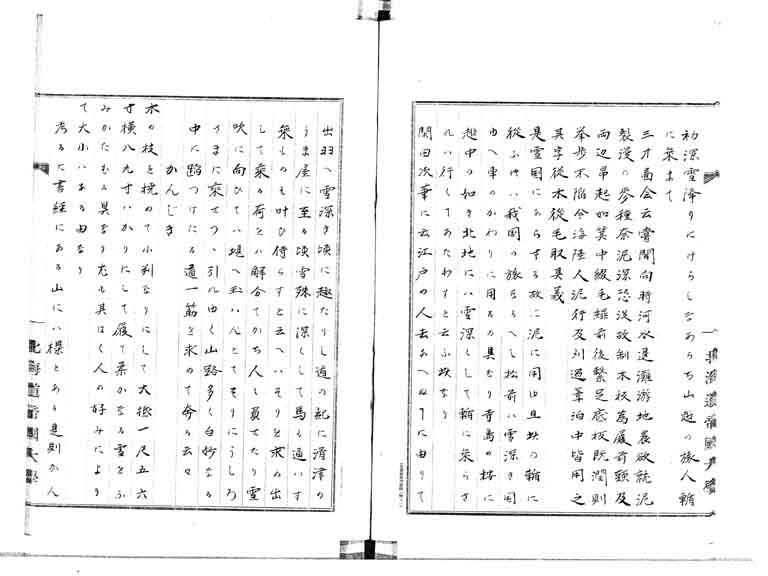 初深雪降りにけらしなあらち山越の旅人輴
に乗まて
三才圖会云嘗聞向時河水退灘游地農欲就泥
裂漫の麥種奈泥深恐没故制木板為履前頭及
両辺昂起如箕中綴毛繩前後繋足底板既濶則
挙歩不陥今海陸人泥行及刈過葦泊中皆用之
其字從木從毛取其義
是雪国にあらすする故に泥に用ゆ且此の輴に
從ふけハ我国の旅るへし松前ハ雪深き国
ゆへ車のかわりに用るの具なり寺島の核に
越中の如き北地にハ雪深くして輴に乗らさ
れハ行くてあたわすと云ふ此なり
閑田次筆に云江戸の人去あへぬ下に由りて
出羽へ雪深き頃に趣たりし道の紀に清津の
うま屋に至る頃雪殊に深くして馬も通いす
乗ものも叶ひ侍らすと云へハそりを求め出
して乗る荷をハ解分てかち人に負せたり雪
吹に向ひてハ堪へ玉ハんとてそりにうしろ
さまに乗せつゝ引れゆく山路多く白妙なる
中に踏つけたる道一筋を求めて分る云々
かんじき
木の枝を撓めて小判なりにして大抵一尺五六
寸横八九寸ハかりにして履て柔かなる雪をふ
みかたむる具なり尤も其はく人の好みにより
て大小ハある由なり
考るに書經にある山にハ樏とある是則かん
北海道帝國大學
北海道帝國大學